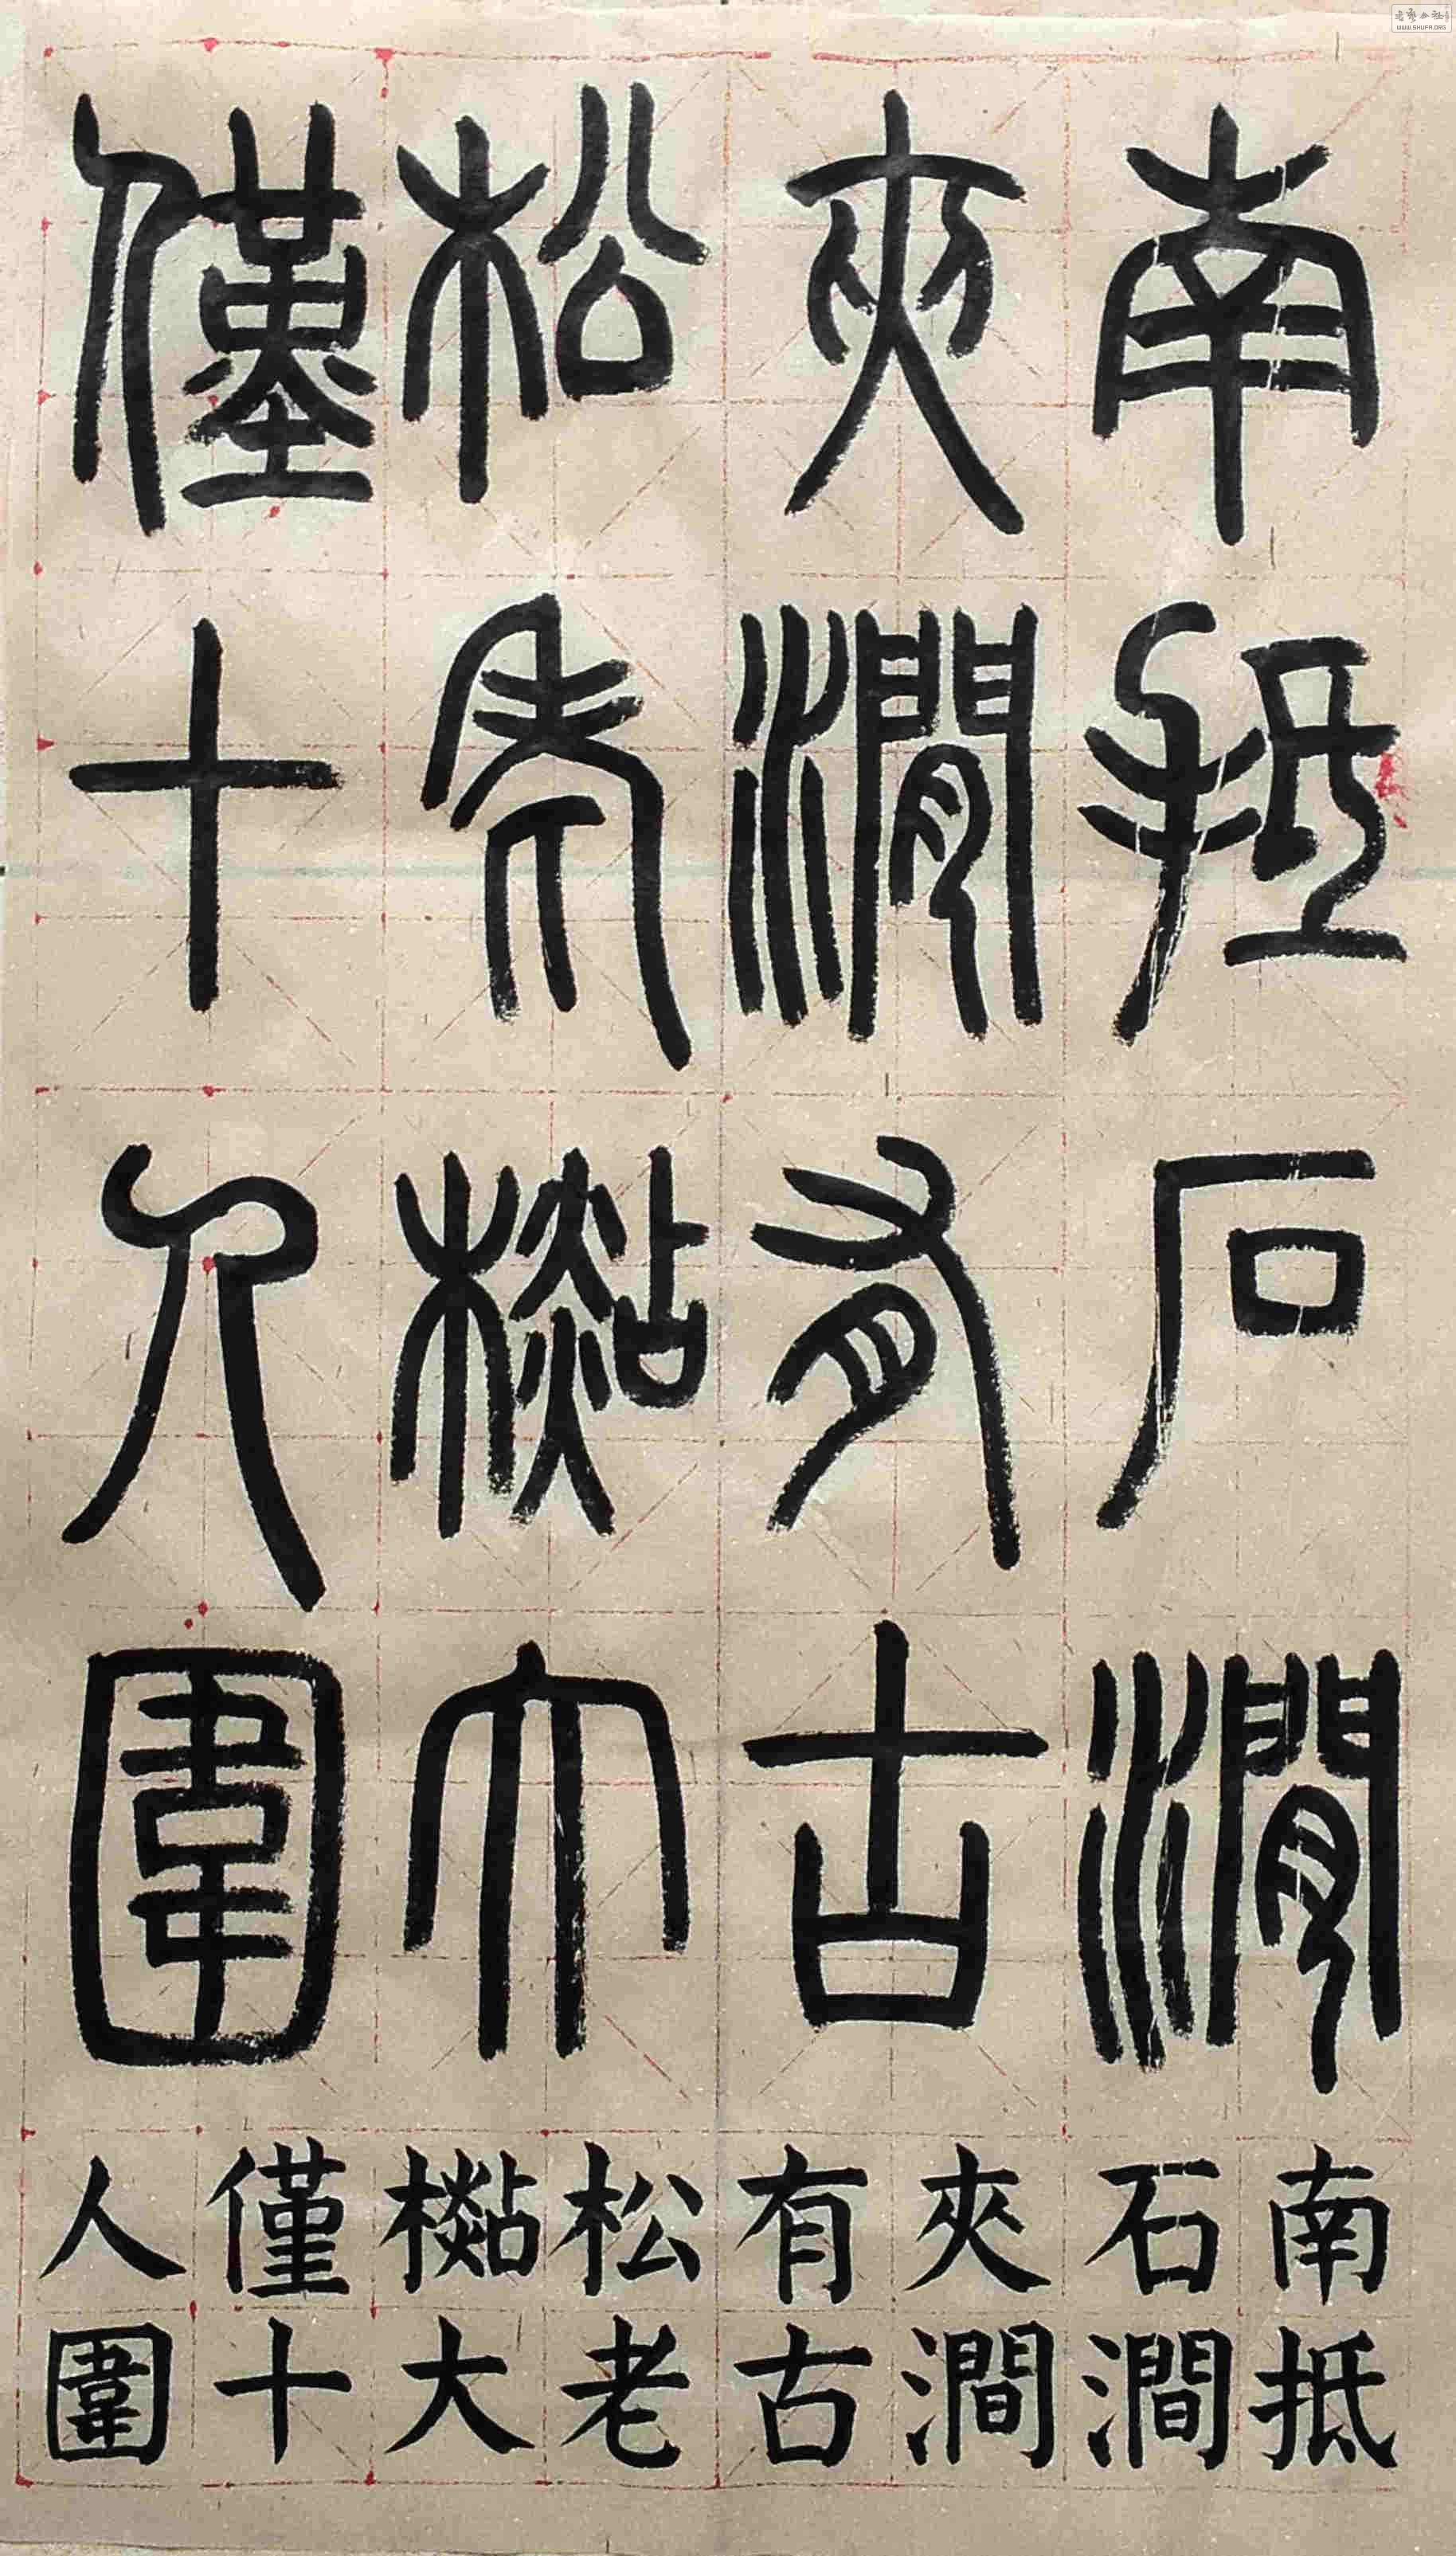 南抵石澗
夾澗有古
松老檆大
僅十人圍
南抵
石澗
夾澗
有古
松老
檆大
僅十
人圍
WWW.SHUFA.ORG